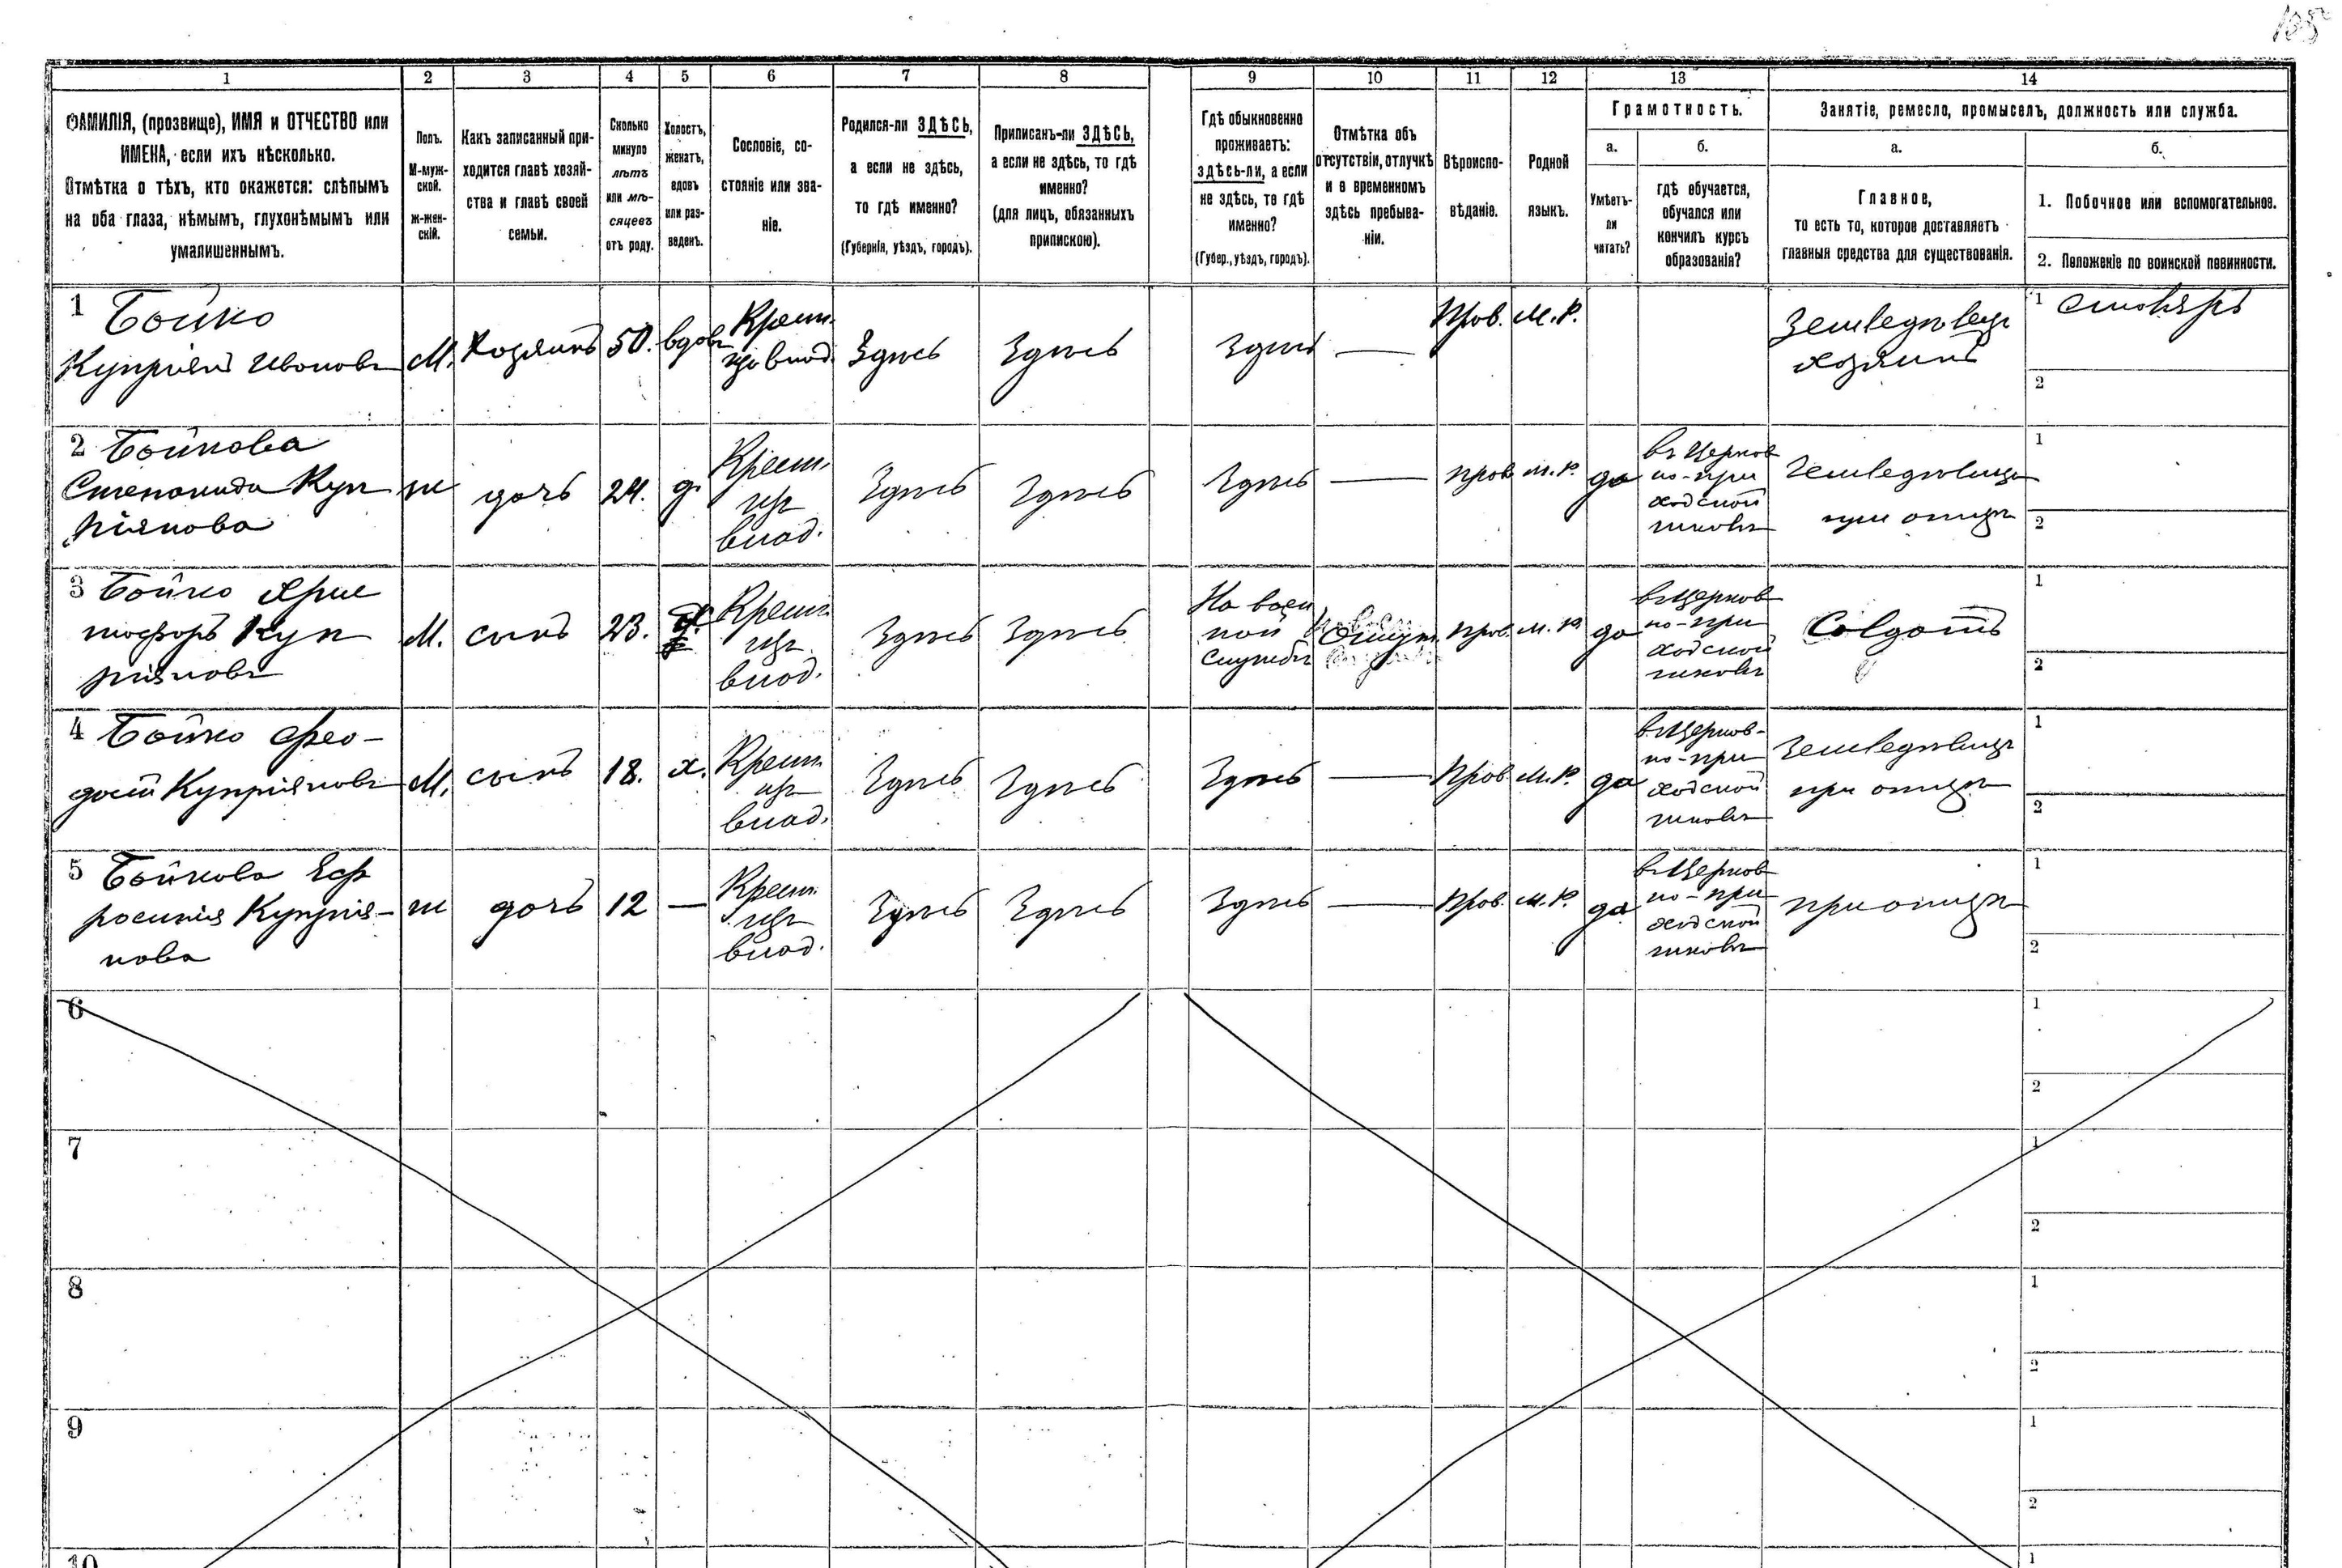 135
1 2 3 4 5 6 7 8 9 10 11 12 13 14
ФАМИЛІЯ, (прозвище), ИМЯ и ОТЧЕСТВО или
ИМЕНА, если ихъ нѣсколько.
Отмѣтка о тѣхъ, кто окажется: слѣпымъ
на оба глаза, нѣмымъ, глухонѣмымъ или
умалишеннымъ.
Полъ.
М-муж-
ской.
ж-жен-
скій.
Какъ записанный при-
ходится главѣ хозяй-
ства и главѣ своей
семьи.
Сколько
минуло
лѣтъ
или мѣ-
сяцевъ
отъ роду.
Холостъ,
женатъ,
вдовъ
или раз-
веденъ.
Сословіе, со-
стояніе или зва-
ніе.
Родился-ли ЗДѢСЬ,
а если не здѣсь,
то гдѣ именно?
(Губернія, уѣздъ, городъ).
Приписанъ-ли ЗДѢСЬ,
а если не здѣсь, то гдѣ
именно?
(для лицъ, обязанныхъ
припискою).
Гдѣ обыкновенно
проживаетъ:
здѣсь-ли, а если
не здѣсь, то гдѣ
именно?
(Губер., уѣздъ, городъ).
Отмѣтка объ
отсутствіи, отлучкѣ
и о временномъ
здѣсь пребыва-
ніи.
Вѣроиспо-
вѣданіе.
Родной
языкъ.
Грамотность.
а.
Умѣетъ-
ли
читать?
б.
гдѣ обучается,
обучался или
кончилъ курсъ
образованія?
Занятіе, ремесло, промыселъ, должность или служба.
а.
Главное,
то есть то, которое доставляетъ
главныя средства для существованія.
б.
1. Побочное или вспомогательное.
2. Положеніе по воинской повинности.
1 Бойко
Купріянъ Ивановъ
М.
Хозяинъ
50.
вдовъ
Крест.
изъ влад.
Здѣсь
Здѣсь
Здѣсь
—
Прав.
М.Р.
Земледѣлецъ
хозяинъ
1 столяръ
2
2 Бойкова
Степанида Куп
ріянова
ж
дочь
24.
д.
Крест.
изъ
влад.
Здѣсь
Здѣсь
Здѣсь
—
Прав
М.Р.
да
въ Церков
но-при
ходской
школѣ
Земледѣлица
при отцѣ
1
2
3 Бойко Хрис
тофоръ Куп
ріяновъ
М.
сынъ
23.
Крест.
изъ
влад.
Здѣсь
Здѣсь
На воен
ной
службѣ
Отсут.
Прав.
М.Р.
да
въ Церков
но-при
ходской
школѣ
Солдатъ
1
2
4 Бойко Фео-
досій Купріяновъ
М.
сынъ
18.
х.
Крест.
изъ
влад.
Здѣсь
Здѣсь
Здѣсь
—
Прав
М.Р.
да
въ Церков-
но-при
ходской
школѣ
Земледѣлецъ
при отцѣ
1
2
5 Бойкова Еф
росинія Купрія-
нова
ж
дочь
12
—
Крест.
изъ
влад.
Здѣсь
Здѣсь
Здѣсь
—
Прав.
М.Р.
да
въ Церков
но-при
ходской
школѣ
при отцѣ
1
2
6
1
2
7
1
2
8
1
2
9
1
2
10
1